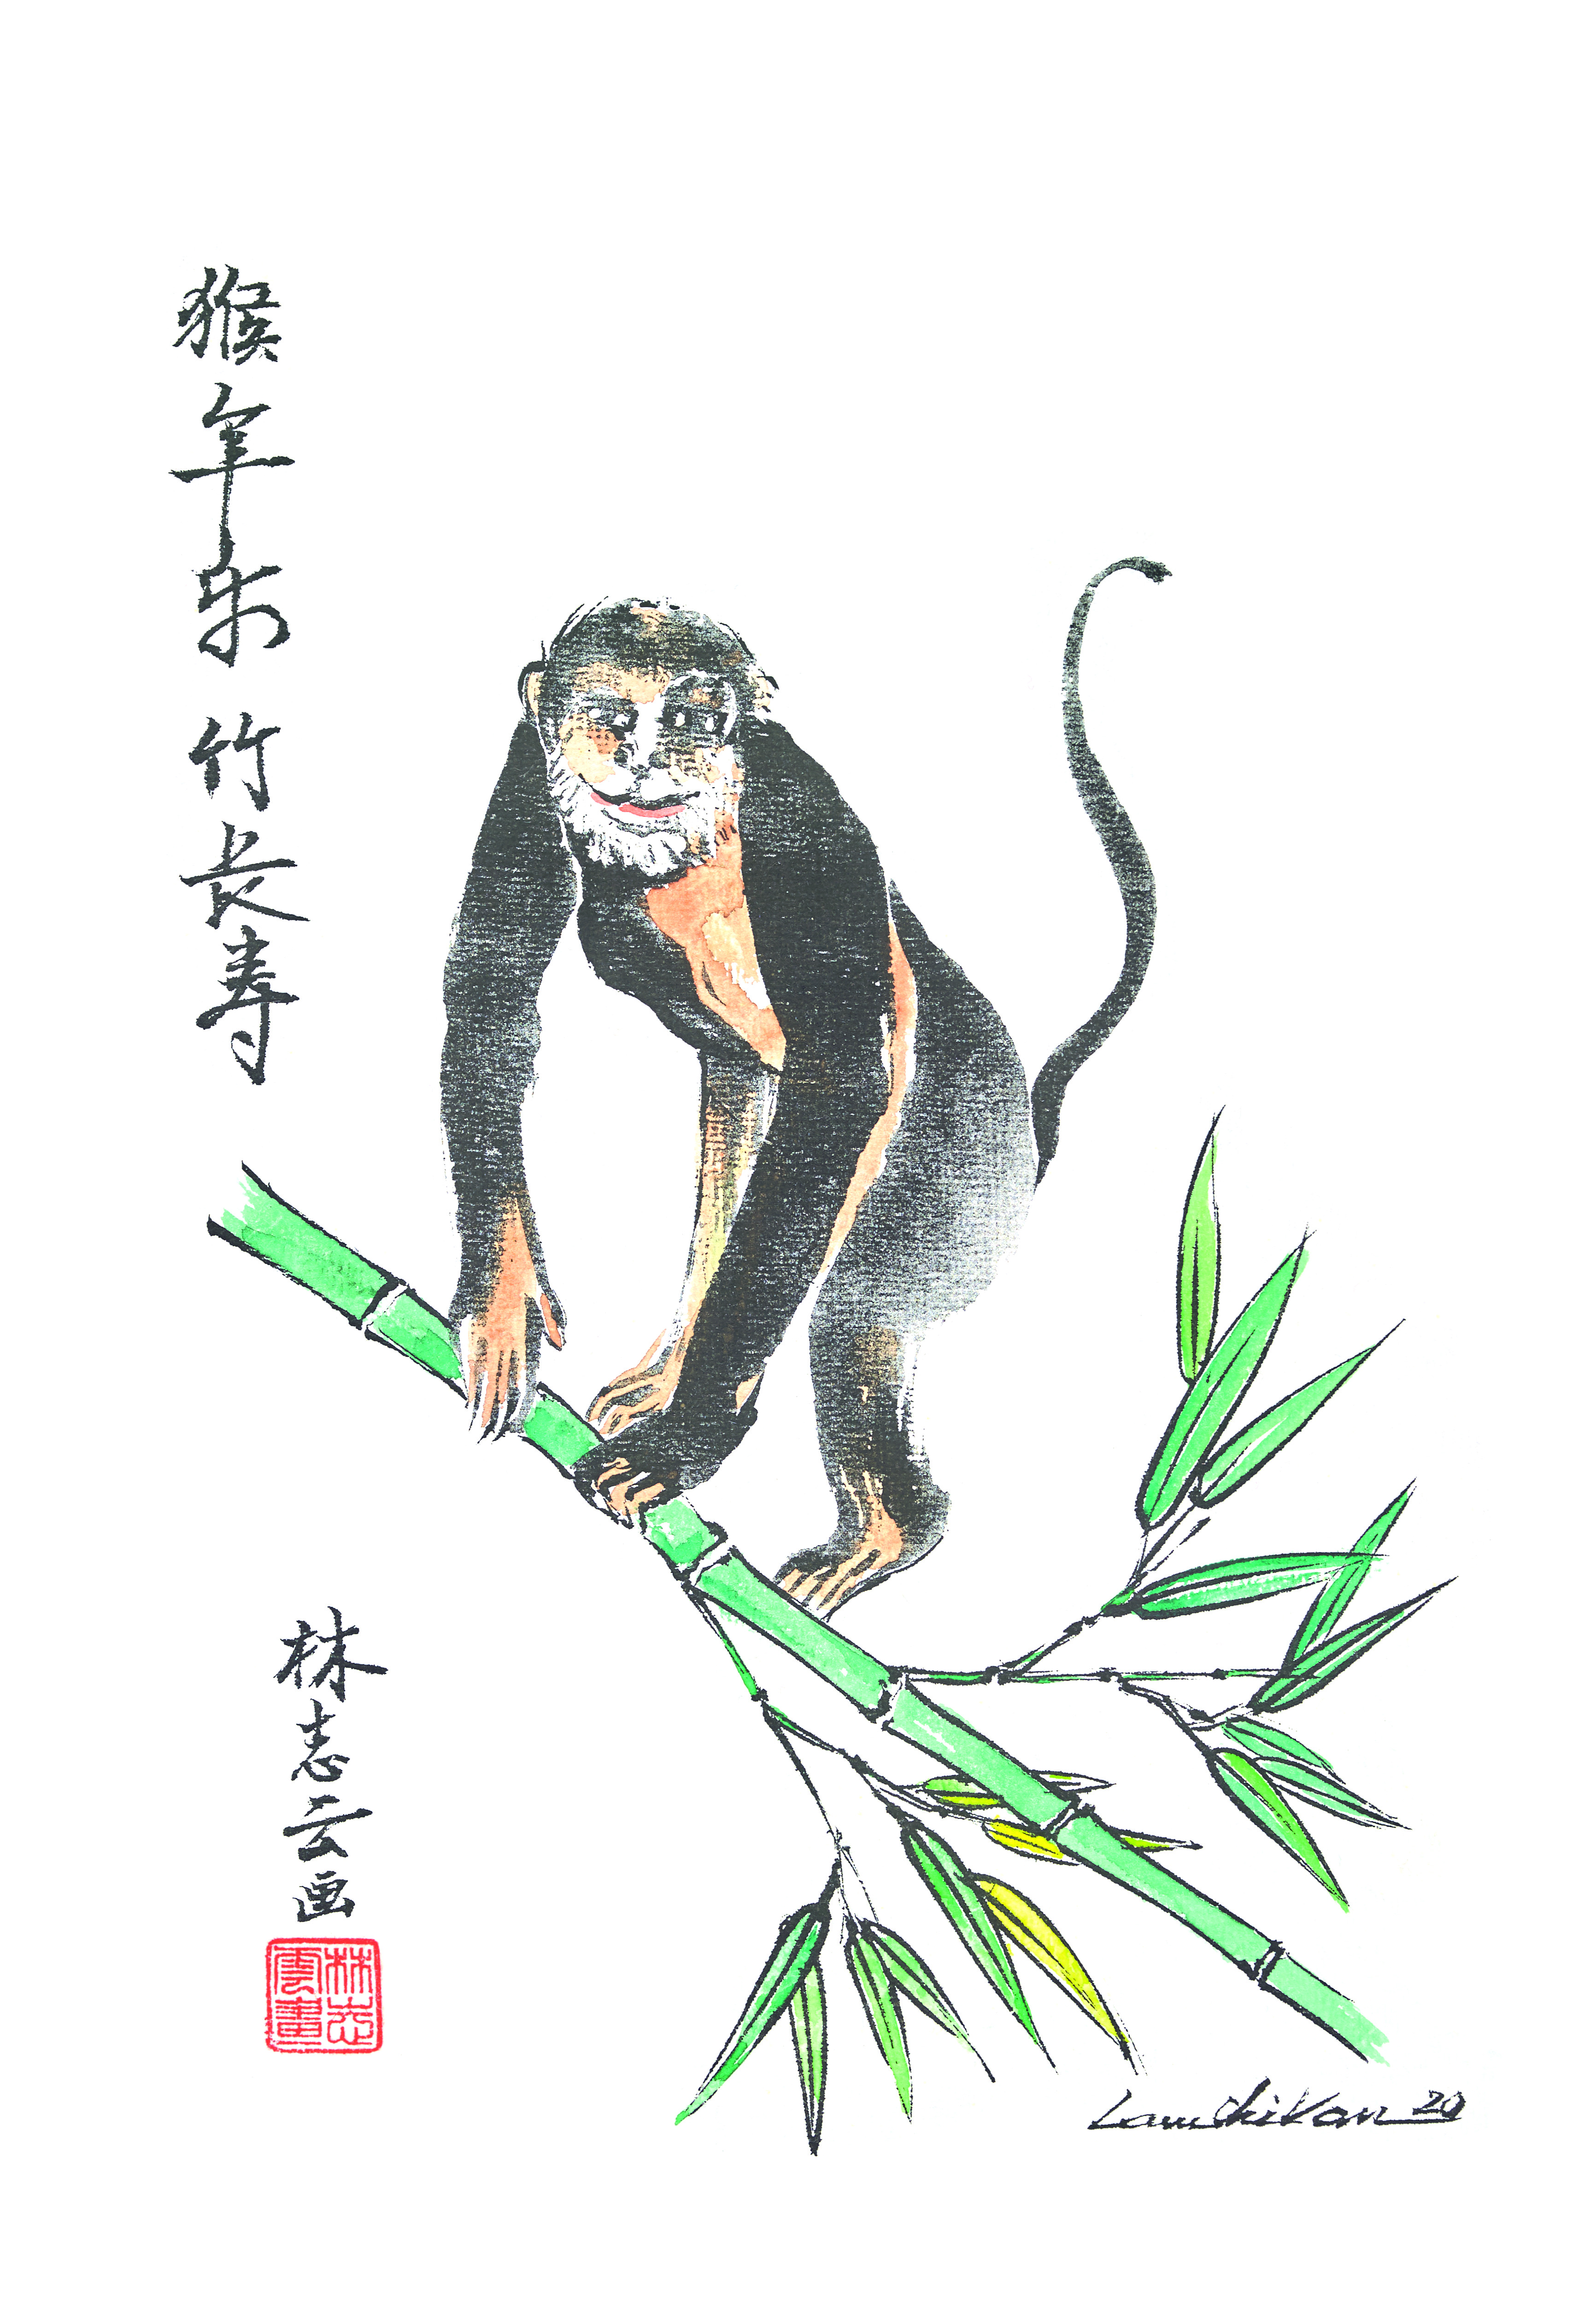 猴年乐 竹长寿
林志云画
林志雲畫
Lam Chi Van 20